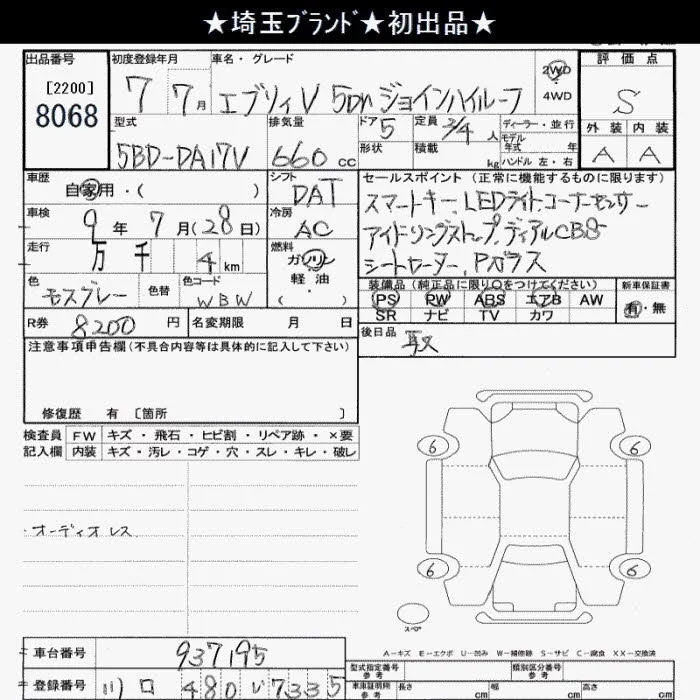 ★埼玉ﾌﾞﾗﾝﾄﾞ★初出品★
出品番号 初度登録年月 車名・グレード 評価点
[2200]
8068
7 7月 エブリィV 5Dr ジョインハイルーフ 2WD 4WD S
型式 排気量 ドア 定員 ディーラー・並行 外装 内装
5 2/4人 モデル年式 年
5BD-DA17V 660cc 形状 積載 kg ハンドル 左・右 A A
車歴 シフト セールスポイント (正常に機能するものに限ります)
自家用・( ) DAT スマートキー、LEDライト、コーナーセンサー
車検 冷房
9年7月(28日) AC アイドリングストップ、ディアルCBS
走行 燃料
万 千 4km ガソリン シートヒーター、Pガラス
色 色替 色コード 軽油
モスグレー WBW ・( )
装備品 (純正品に限り○をつけてください) 新車保証書
PS PW ABS エアB AW 有・無
SR ナビ TV カワ
R券 8200円 名変期限 月 日 後日品 取
注意事項申告欄(不具合内容等は具体的に記入して下さい)
修復歴 有 [箇所 ]
検査員 FW キズ・飛石・ヒビ割・リペア跡・×要
記入欄 内装 キズ・汚レ・コゲ・穴・スレ・キレ・破レ
6 6
・オーディオレス
6 6
スペア
A－キズ E－エクボ U－凹み W－補修跡 S－サビ C－腐食 XX－交換済
車台番号 937195
型式指定番号 参考 類別区分番号 参考
登録番号 川口 480 い 7335
車庫証明用 参考 長さ cm 幅 cm 高さ cm